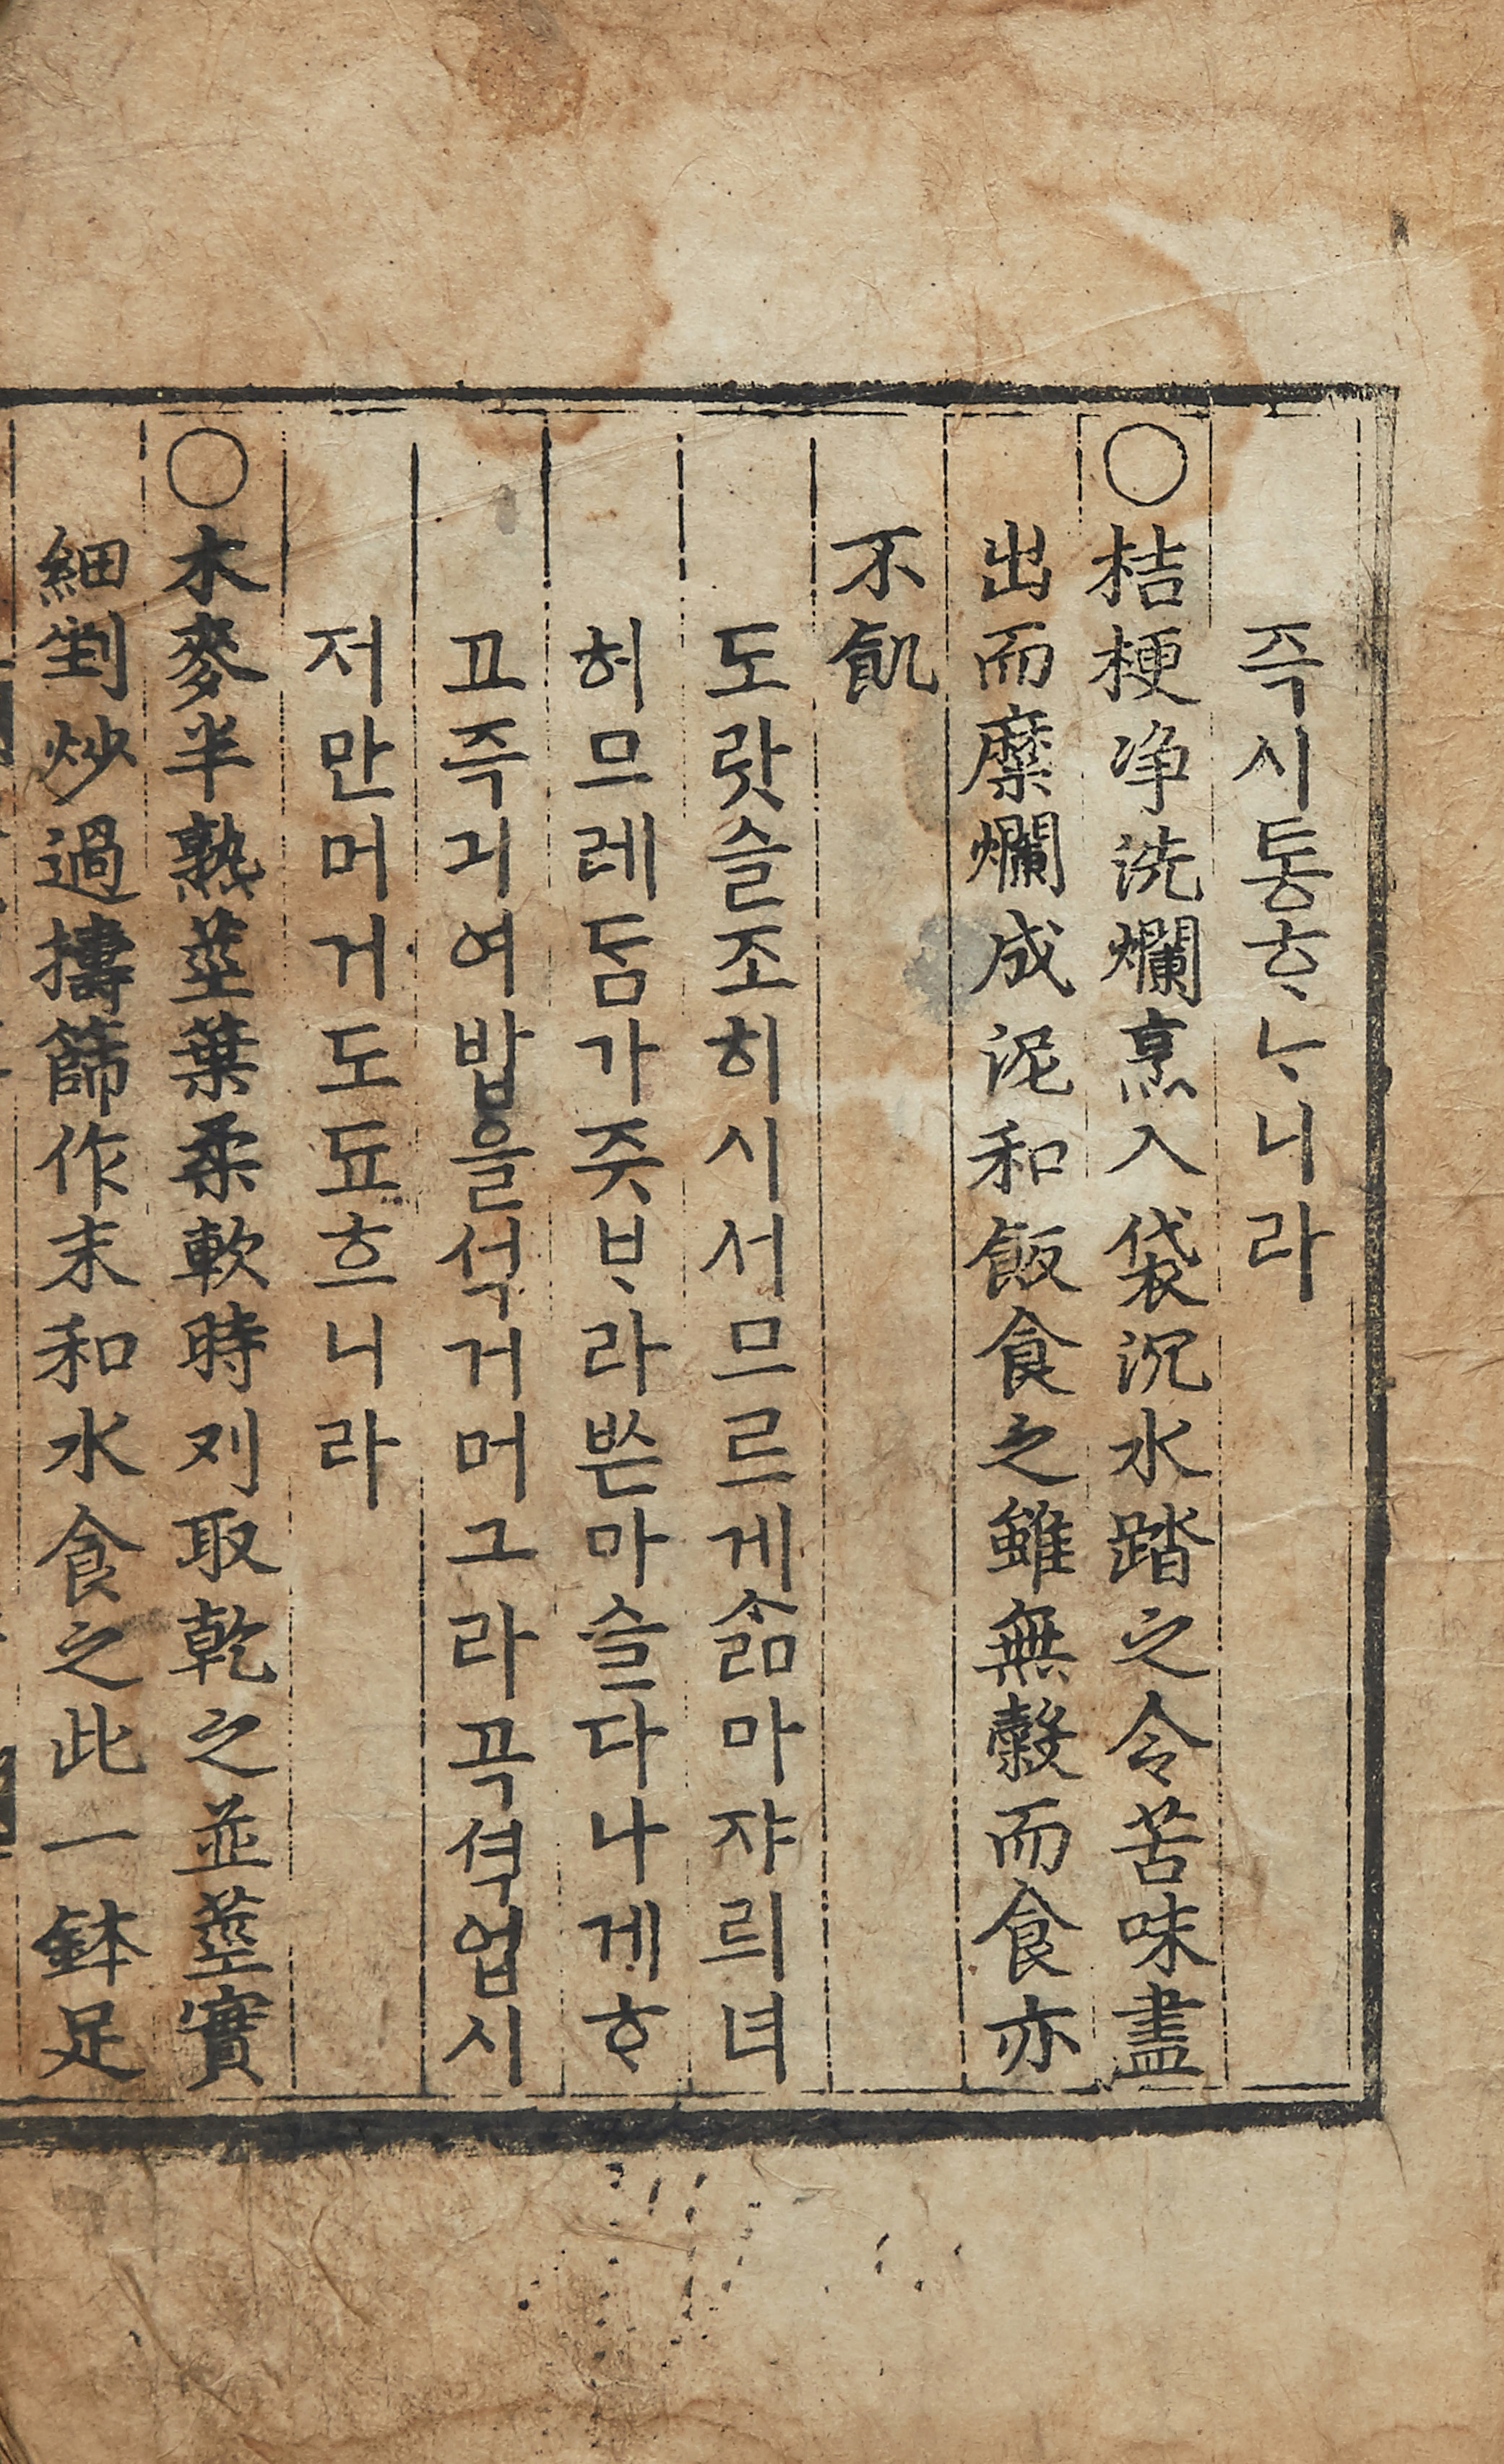 즉시통ᄒᆞᄂᆞ니라
○桔梗净洗爛烹入袋沉水踏之令苦味盡
出而糜爛成泥和飯食之雖無穀而食亦
不飢
도랏슬조히시서므르게ᄉᆞᆱ마쟈릐녀
허므레둠가즛ᄇᆞ라ᄡᅳᆫ마슬다나게ᄒᆞ
고즉긔여밥을석거머그라곡셕업시
저만머거도됴흐니라
○木麥半熟莖葉柔軟時刈取乾之並莖實
細剉炒過擣篩作末和水食之此一鉢足